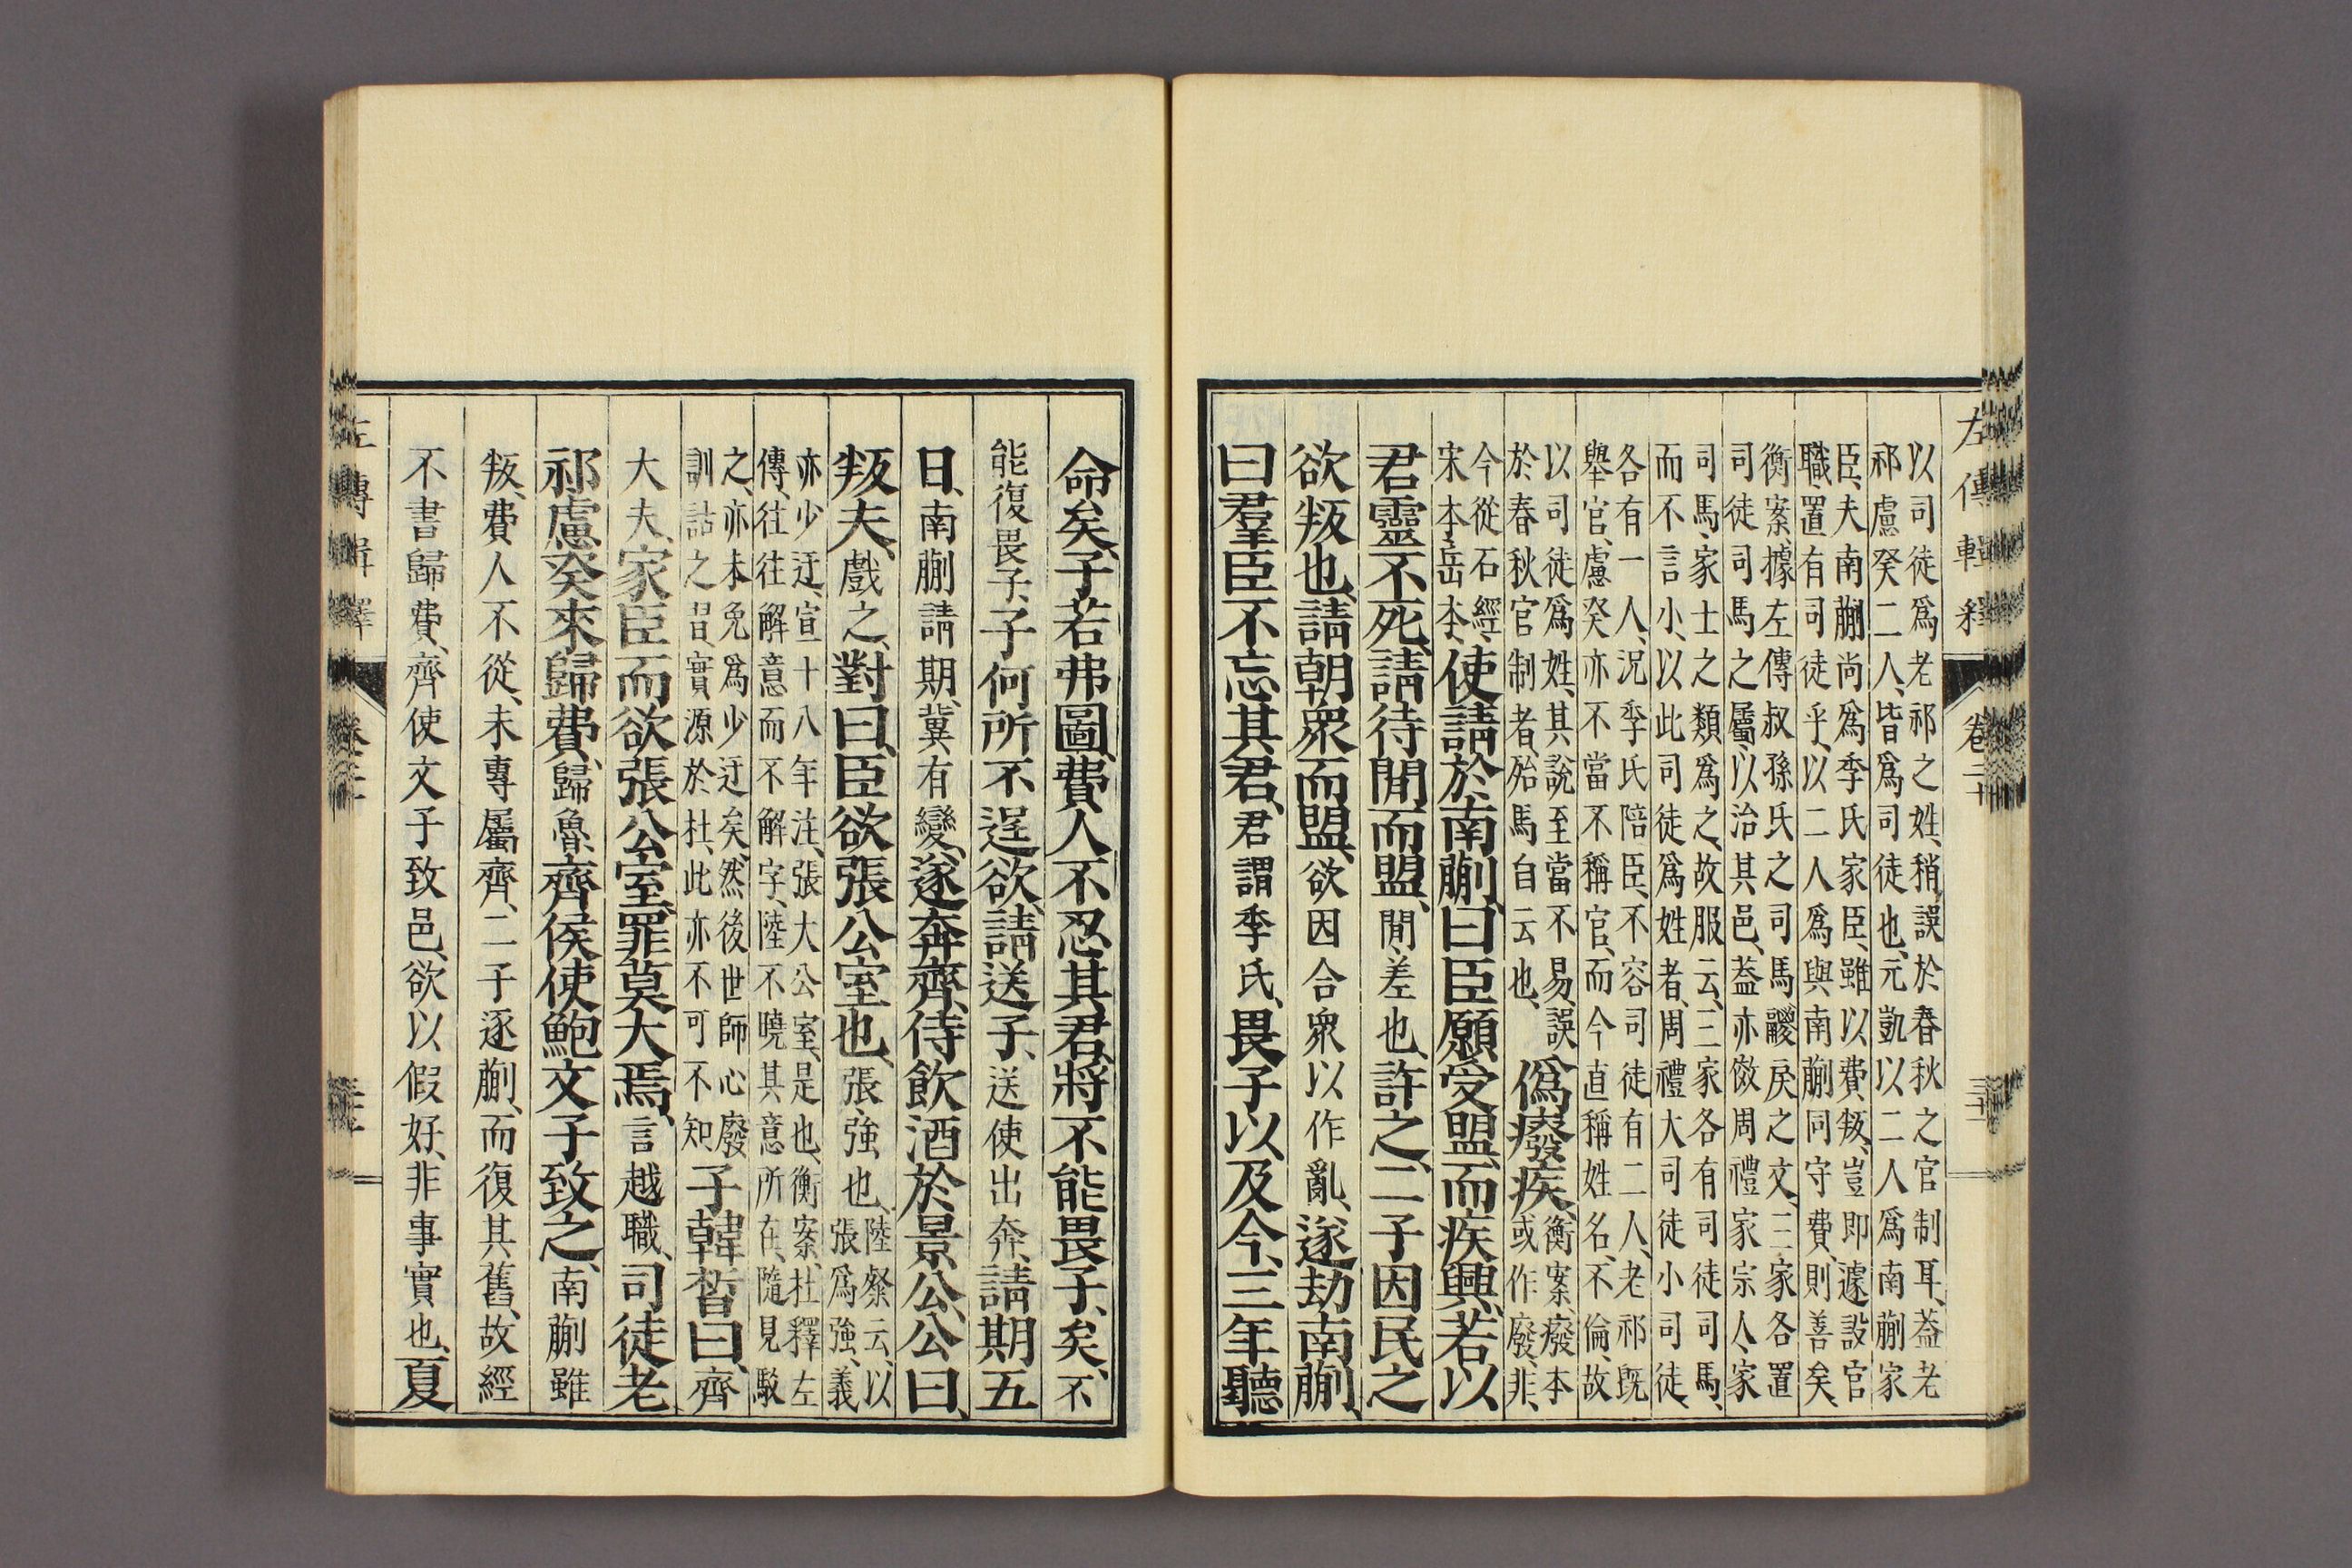 左傳輯釋 卷二十
以司徒爲老祁之姓、稍誤於春秋之官制耳、葢老
祁慮癸二人、皆爲司徒也、元凱以二人爲南蒯家
臣、夫南蒯尚爲季氏家臣、雖以費叛、豈即遽設官
職、置有司徒乎、以二人爲與南蒯同守費、則善矣、
衡案、據左傳叔孫氏之司馬鬷戾之文、三家各置
司徒司馬之屬、以治其邑、葢亦倣周禮家宗人、家
司馬、家士之類爲之、故服云、三家各有司徒司馬、
而不言小、以此司徒爲姓者、周禮大司徒小司徒、
各有一人、況季氏陪臣、不容司徒有二人、老祁既
舉官、慮癸亦不當不稱官、而今直稱姓名、不倫、故
以司徒爲姓、其說至當不易、誤
於春秋官制者、殆馬自云也、
僞癈疾、
衡案、癈本
或作廢、非、
今從石經、
宋本岳本、
使請於南蒯、曰臣願受盟、而疾興、若以
君靈不死、請待閒而盟、閒、差也、許之、二子因民之
欲叛也、請朝衆而盟、欲因合衆以作亂、遂劫南蒯、
曰羣臣不忘其君、君謂季氏、畏子以及今、三年聽
命矣、子若弗圖、費人不忍其君、將不能畏子、矣、不
能復畏子、子何所不逞欲、請送子、送使出奔、請期五
日、南蒯請期、冀有變、遂奔齊、侍飲酒於景公、公曰、
叛夫、戲之、對曰、臣欲張公室也、張、強也、
陸粲云、以
張爲強、義
亦少迂、宣十八年注、張大公室、是也、衡案、杜釋左
傳、往往解意而不解字、陸不曉其意所在、隨見駁
之、亦未免爲少迂矣、然後世師心廢
訓詁之習、實源於杜、此亦不可不知、
子韓晳曰、齊
大夫、家臣而欲張公室、罪莫大焉、言越職、司徒老
祁慮癸來歸費、歸魯、齊侯使鮑文子致之、南蒯雖
叛、費人不從、未專屬齊、二子逐蒯、而復其舊、故經
不書歸費、齊使文子致邑、欲以假好、非事實也、夏
左傳輯釋